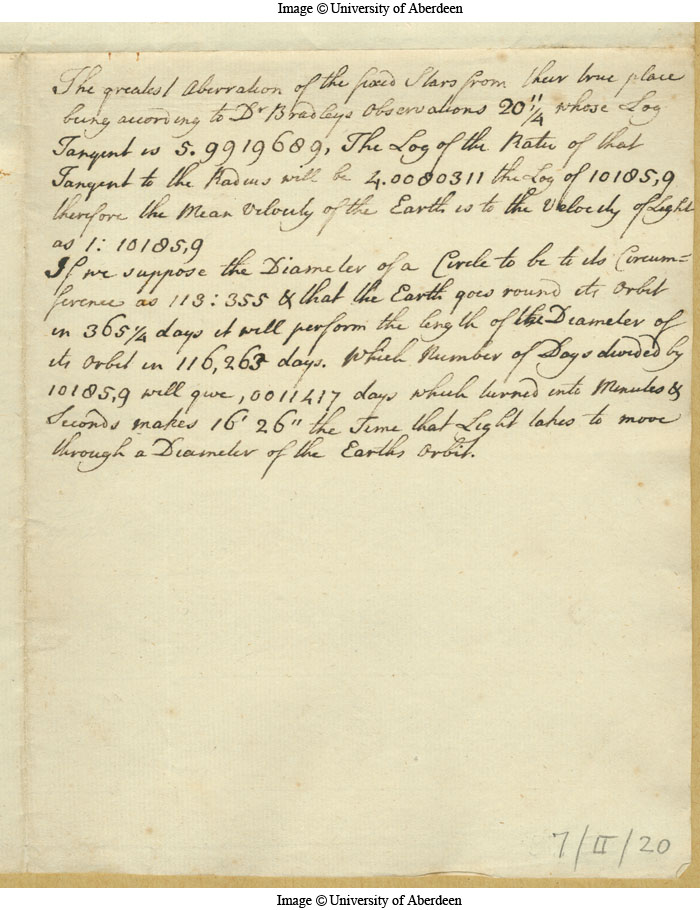 Image © University of Aberdeen
The greatest Aberration of the fixed Stars from their true place
being according to Dr Bradleys Observations 20"1/4 whose Log
Tangent is 5.9919689, The Log of the Ratio of that
Tangent to the Radius will be 4.0080311 the Log of 10185,9
therefore the Mean Velocity of the Earth is to the Velocity of Light
as 1: 10185,9
If we suppose the Diameter of a Circle to be to its Circum=
ference as 113:355 & that the Earth goes round its Orbit
in 365 1/4 days it will perform the length of the Diameter of
its Orbit in 116,263 days. Which Number of Days divided by
10185,9 will give ,0011417 days which turned into Minutes &
Seconds makes 16' 26" the Time that Light takes to move
through a Diameter of the Earths Orbit.
7/II/20
Image © University of Aberdeen